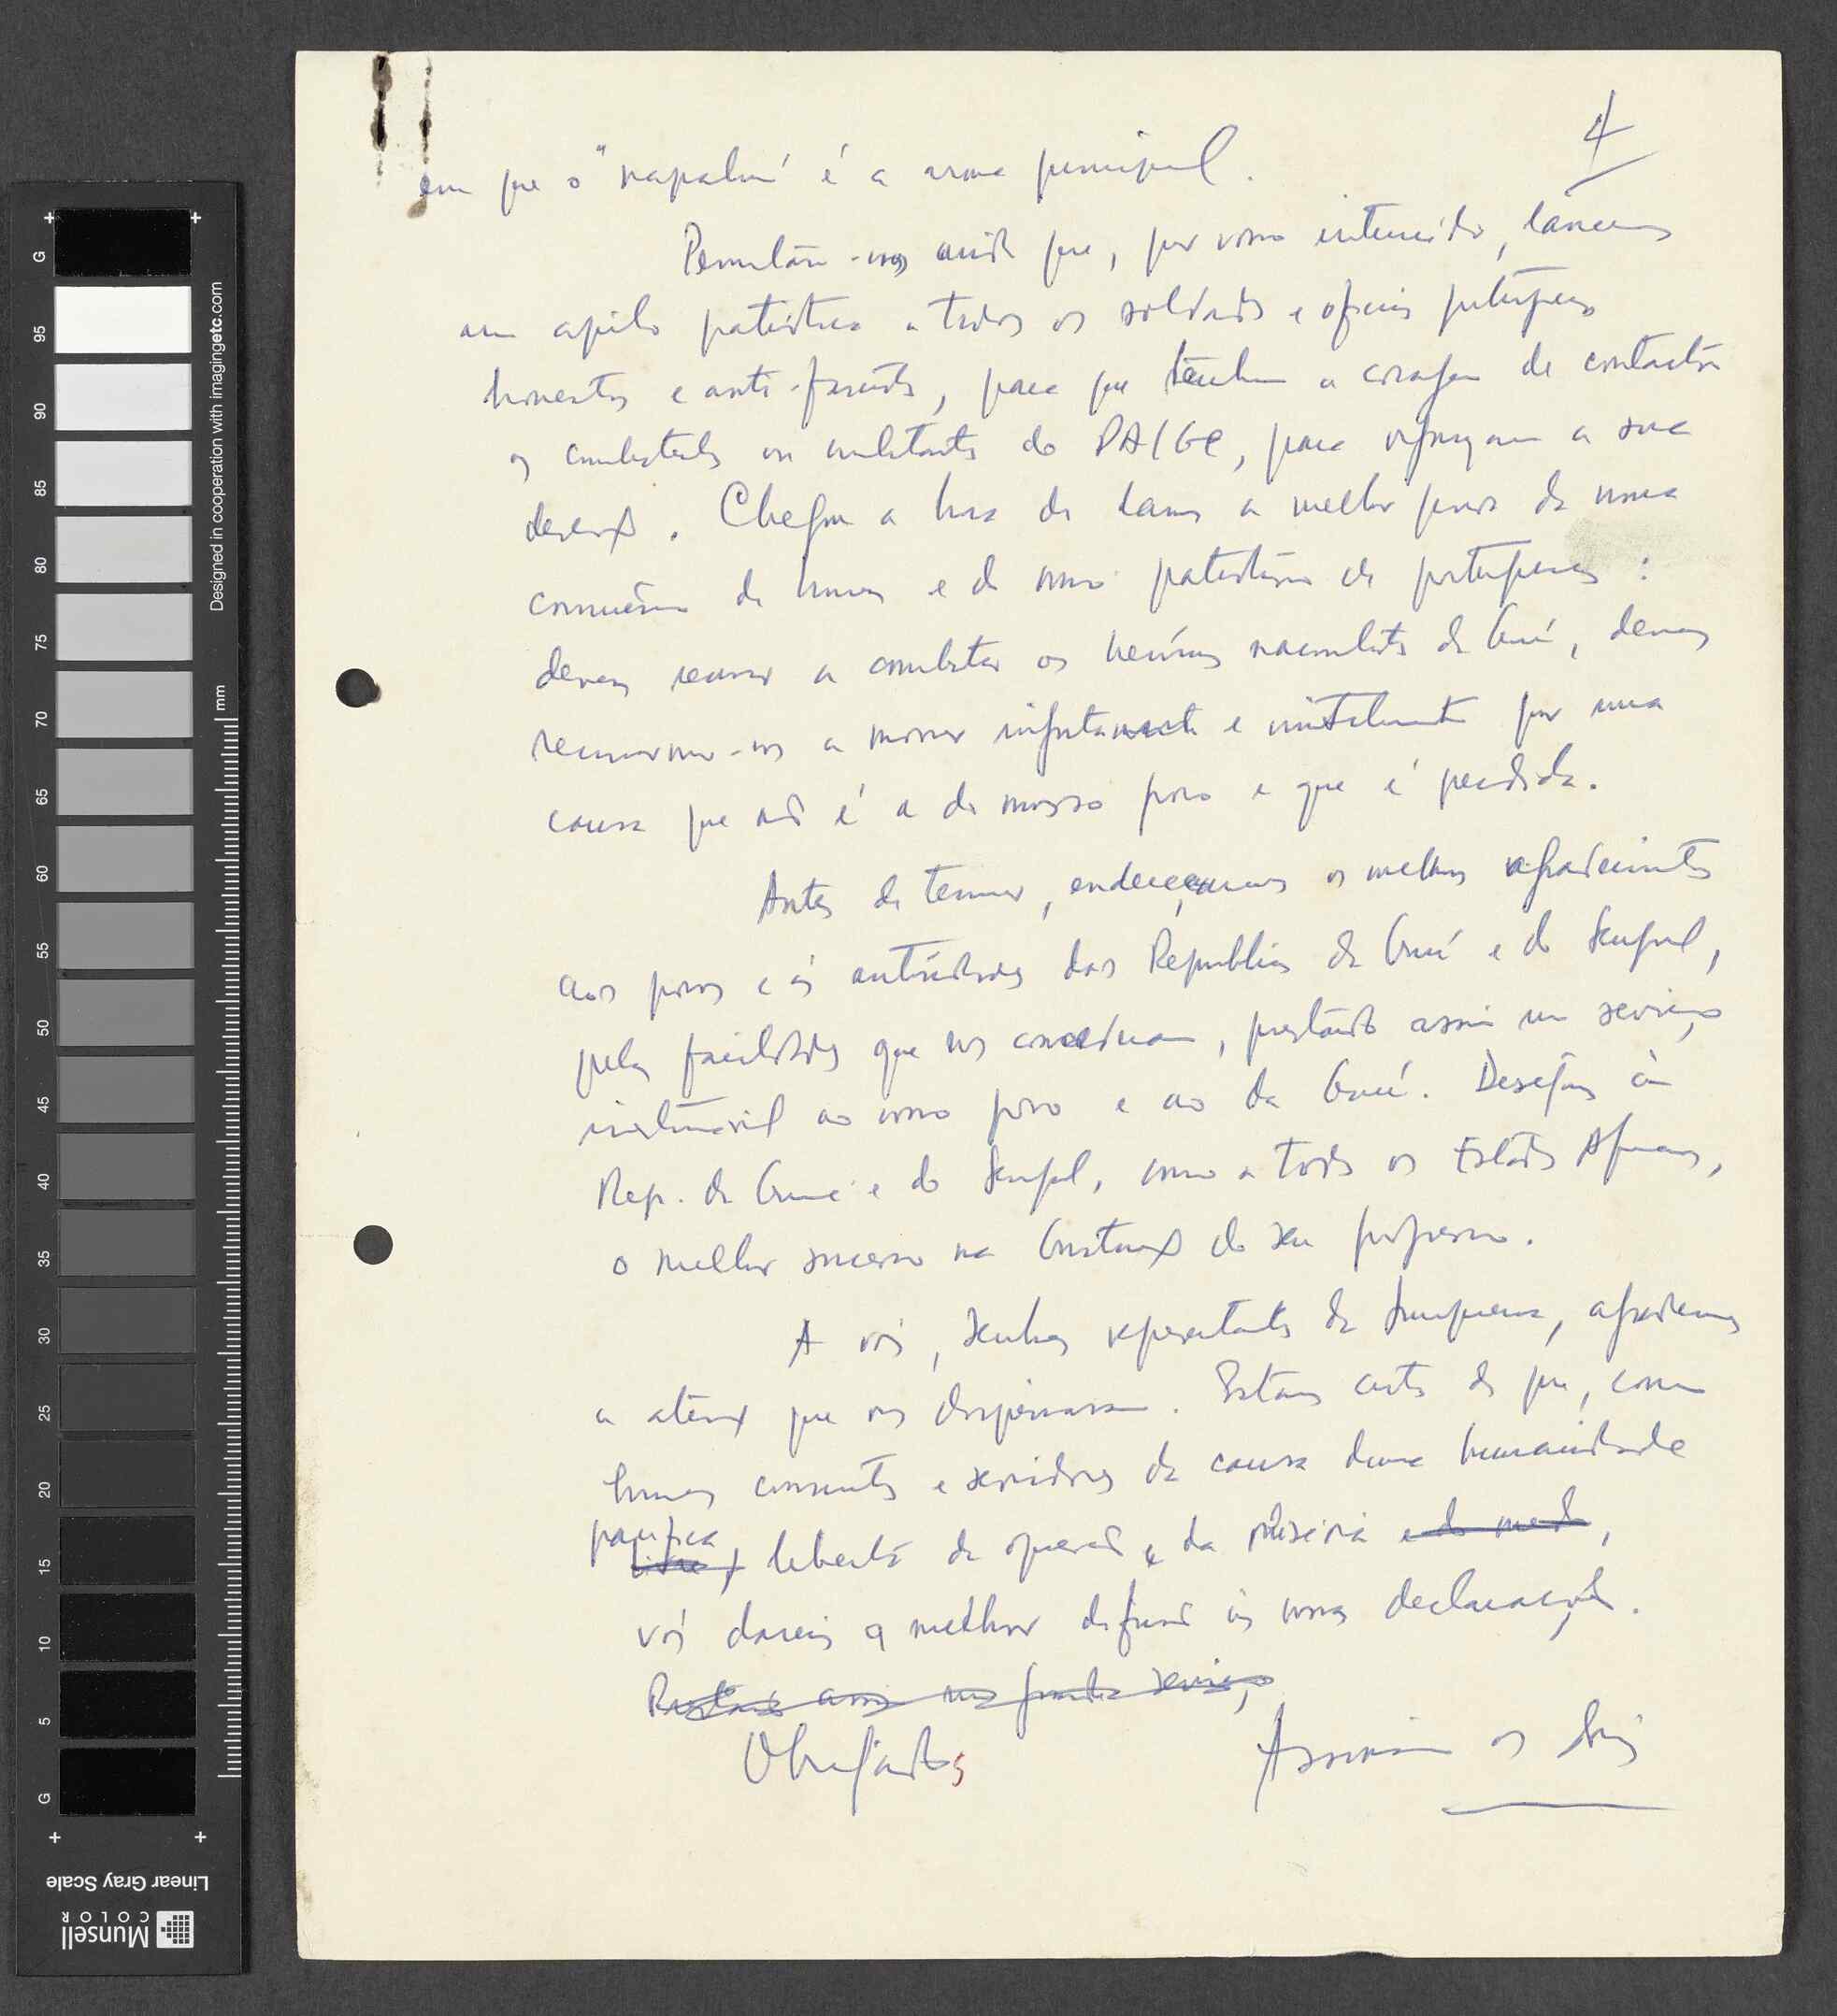 4
em que o "napalm" é a arma principal.
Permitam-nos ainda que, por vosso intermédio, lancemos
um apelo patriótico a todos os soldados e oficiais portugueses
honestos e anti-fascistas, para que tenham a coragem de contactar
os combatentes ou militantes do PAIGC, para organizarem a sua
deserção. Chegou a hora de darmos a melhor prova da nossa
consciência de homens e do nosso patriotismo de portugueses:
devemos recusar a combater os heróicos nacionalistas da Guiné, devemos
recusarmo-nos a morrer inglòriamente e inùtilmente por uma
causa que não é a do nosso povo e que é perdida.
Antes de terminar, endereçamos os melhores agradecimentos
aos povos e às autoridades das Repúblicas da Guiné e do Senegal,
pelas facilidades que nos concederam, prestando assim um serviço
inestimável ao nosso povo e ao da Guiné. Desejamos às
Rep. da Guiné e do Senegal, como a todos os Estados Africanos,
o melhor sucesso na construção do seu progresso.
A vós, senhores representantes da imprensa, agradecemos
a atenção que nos dispensaram. Estamos certos de que, como
homens conscientes e servidores da causa duma humanidade
pacífica, liberta da opressão e da miséria e do medo,
livre,
vós dareis a melhor difusão às nossas declarações.
Prestando assim um grande serviço
Obrigados
Assinam os três
G
95
90
85
80
75
70
65
60
55
50
45
40
35
30
25
20
15
10
5
G
mm
Designed in cooperation with imagingetc.com
Linear Gray Scale
Munsell
COLOR